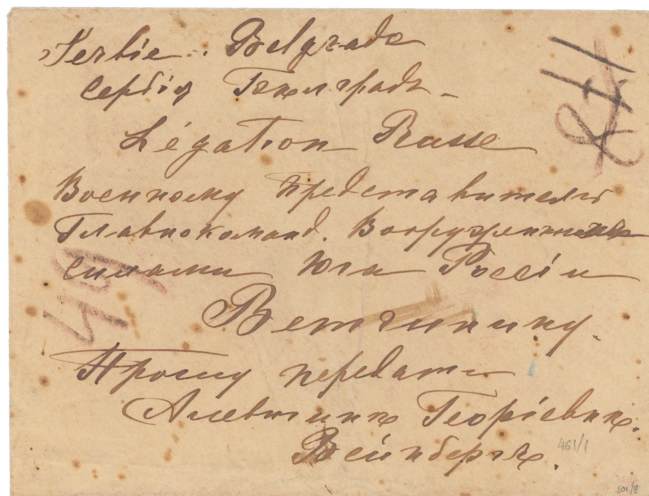 Serbie. Belgrade
Сербія Бѣлградъ
Légation Russe
Военному Представителю
Главнокоманд. Вооруженными
силами Юга Россіи
Ветчинину.
Прошу передать
Алевтинѣ Георгіевнѣ.
Вейнбергъ.
461/1
501/8